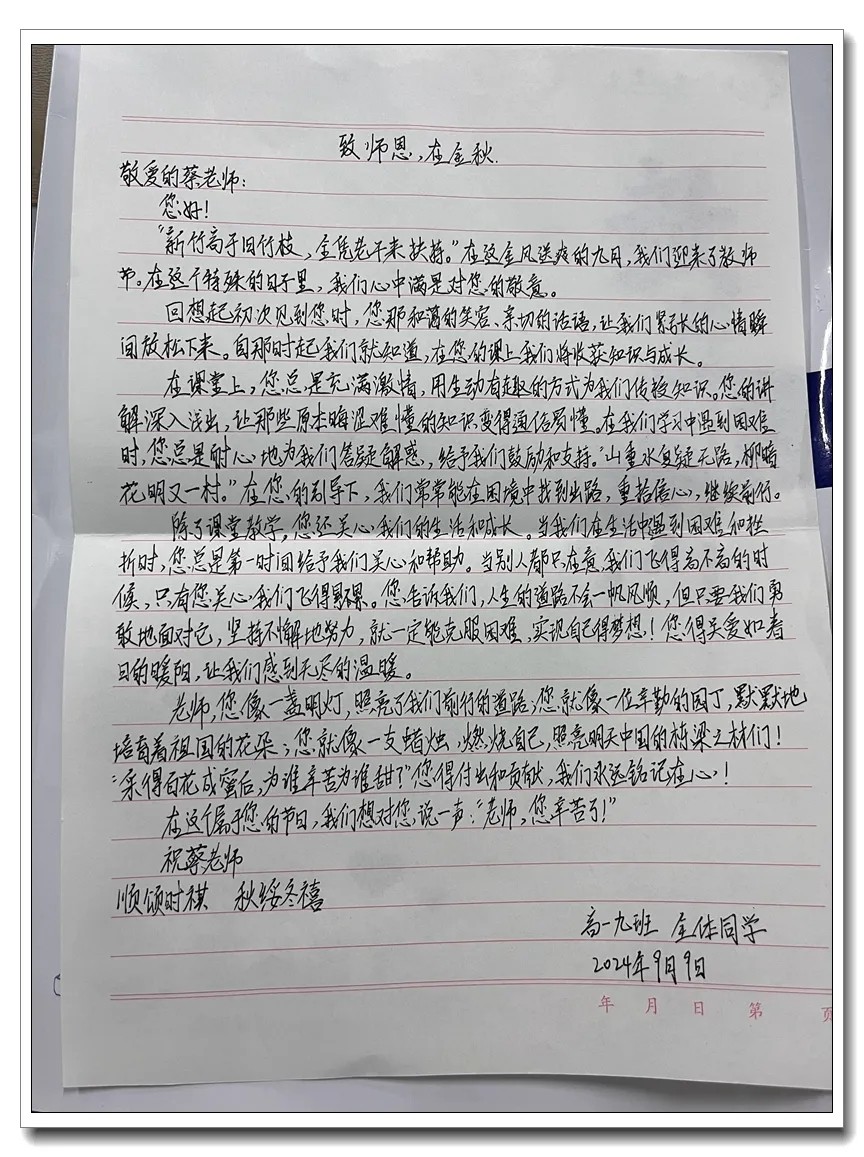 致师恩，在金秋.
敬爱的蔡老师：
您好！
“新竹高于旧竹枝，全凭老干来扶持。”在这金风送爽的九月，我们迎来了教师
节。在这个特殊的日子里，我们心中满是对您的敬意。
回想起初次见到您时，您那和蔼的笑容、亲切的话语，让我们紧张的心情瞬
间放松下来。自那时起我们就知道，在您的课上我们将收获知识与成长。
在课堂上，您总是充满激情，用生动有趣的方式为我们传授知识。您的讲
解深入浅出，让那些原本晦涩难懂的知识变得通俗易懂。在我们学习中遇到困难
时，您总是耐心地为我们答疑解惑，给予我们鼓励和支持。“山重水复疑无路，柳暗
花明又一村。”在您的引导下，我们常常能在困境中找到出路，重拾信心，继续前行。
除了课堂教学，您还关心我们的生活和成长。当我们在生活中遇到困难和挫
折时，您总是第一时间给予我们关心和帮助。当别人都只在意我们飞得高不高的时
候，只有您关心我们飞得累不累。您告诉我们，人生的道路不会一帆风顺，但只要我们勇
敢地面对它，坚持不懈地努力，就一定能克服困难，实现自己得梦想！您得关爱如春
日的暖阳，让我们感到无尽的温暖。
老师，您像一盏明灯，照亮了我们前行的道路；您就像一位辛勤的园丁，默默地
培育着祖国的花朵；您就像一支蜡烛，燃烧自己，照亮明天中国的桥梁之材们！
“采得百花成蜜后，为谁辛苦为谁甜？”您得付出和贡献，我们永远铭记在心！
在这个属于您的节日，我们想对您说一声：“老师，您辛苦了！”
祝蔡老师
顺颂时祺 秋绥冬禧
高一九班 全体同学
2024年9月9日
年 月 日 第 页